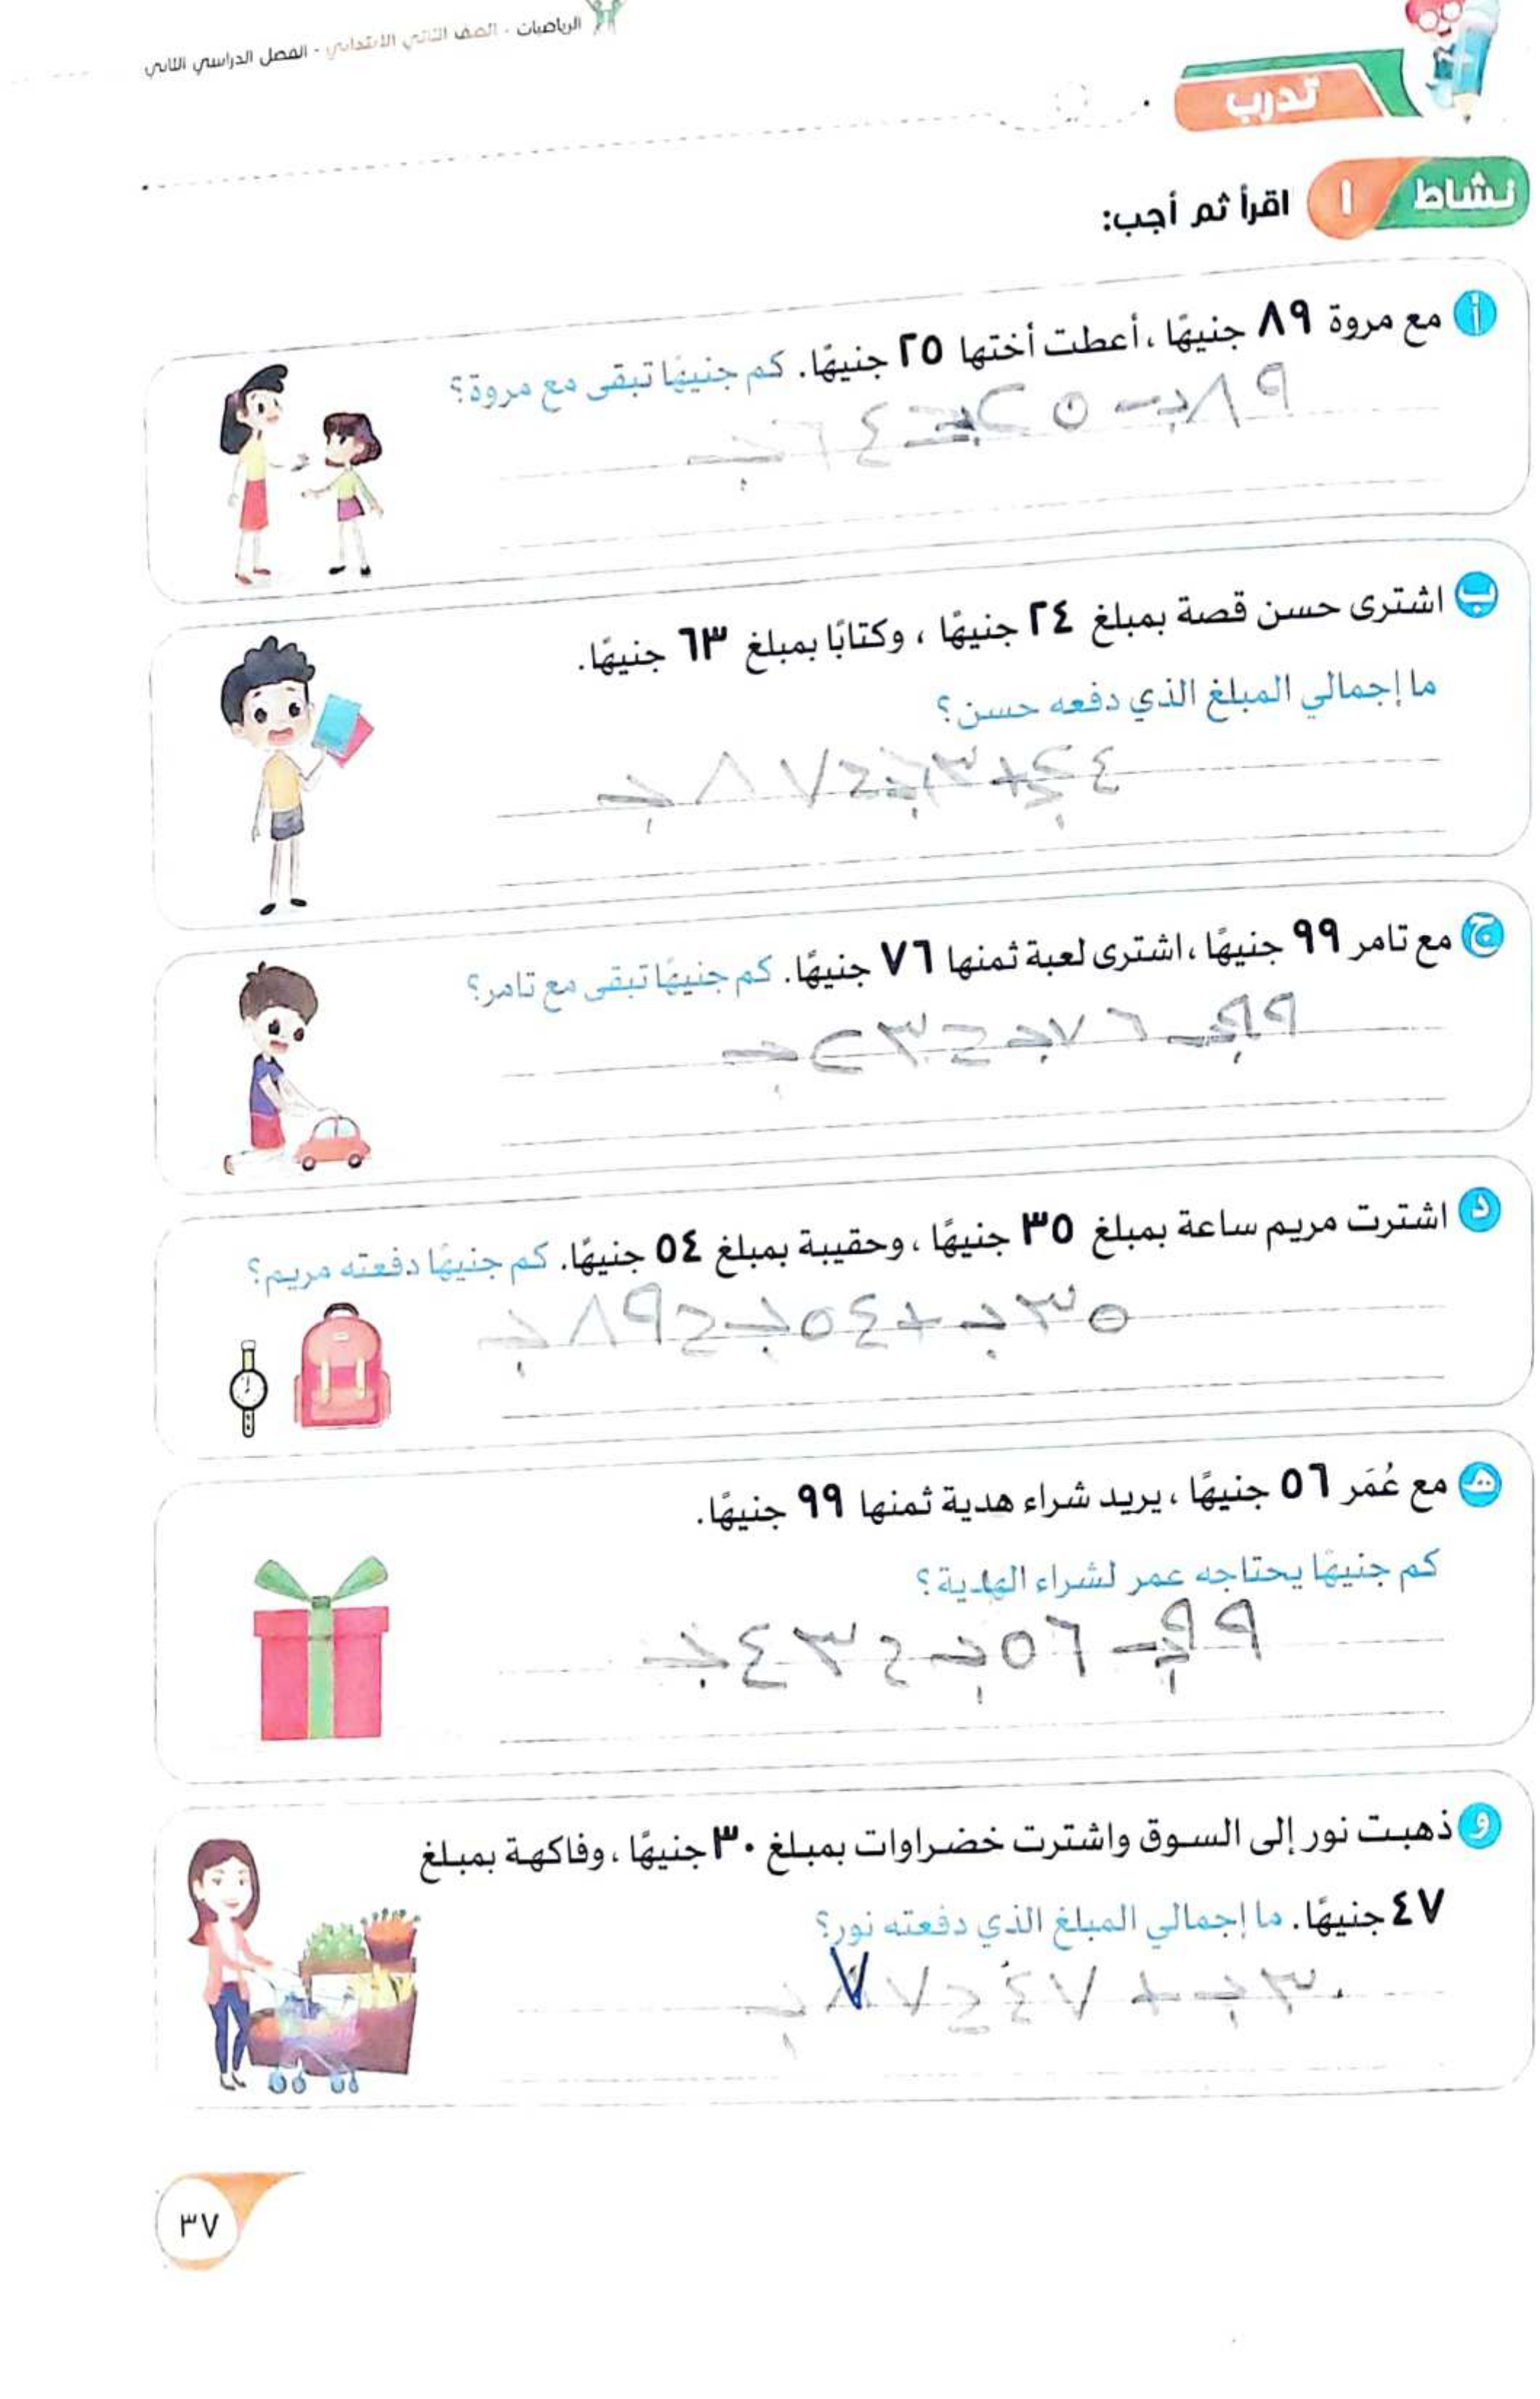 الرياضيات - الصف الثاني الابتدائي - الفصل الدراسي الثاني
تدرب
نشاط ١ اقرأ ثم أجب:
أ مع مروة ٨٩ جنيهًا، أعطت أختها ٢٥ جنيهًا. كم جنيهًا تبقى مع مروة؟
٨٩ج - ٢٥ج = ٦٤ج
ب اشترى حسن قصة بمبلغ ٢٤ جنيهًا، وكتابًا بمبلغ ٦٣ جنيهًا.
ما إجمالي المبلغ الذي دفعه حسن؟
٢٤ج + ٦٣ج = ٨٧ج
ج مع تامر ٩٩ جنيهًا، اشترى لعبة ثمنها ٧٦ جنيهًا. كم جنيهًا تبقى مع تامر؟
٩٩ج - ٧٦ج = ٢٣ج
د اشترت مريم ساعة بمبلغ ٣٥ جنيهًا، وحقيبة بمبلغ ٥٤ جنيهًا. كم جنيهًا دفعته مريم؟
٣٥ج + ٥٤ج = ٨٩ج
هـ مع عُمَر ٥٦ جنيهًا، يريد شراء هدية ثمنها ٩٩ جنيهًا.
كم جنيهًا يحتاجه عمر لشراء الهدية؟
٩٩ج - ٥٦ج = ٤٣ج
و ذهبت نور إلى السوق واشترت خضراوات بمبلغ ٣٠ جنيهًا، وفاكهة بمبلغ
٤٧ جنيهًا. ما إجمالي المبلغ الذي دفعته نور؟
٣٠ج + ٤٧ = ٧٧ج
٣٧